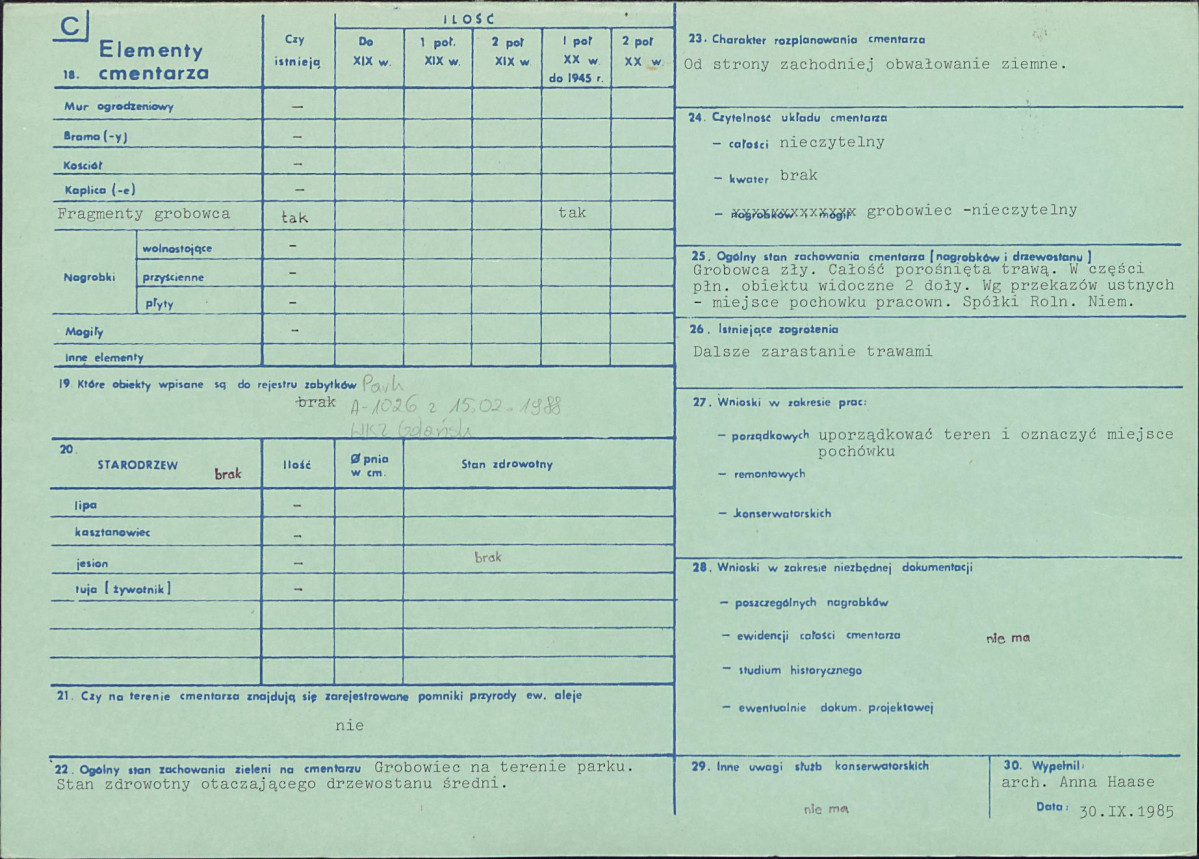 C
Elementy
18. cmentarza
Czy istnieją
ILOŚĆ
Do XIX w.
1 poł. XIX w.
2 poł XIX w
I poł XX w. do 1945 r.
2 poł XX w.
Mur ogrodzeniowy –
Brama (-y) –
Kościół –
Kaplica (-e) –
Fragmenty grobowca tak tak
Nagrobki
wolnostojące –
przyścienne –
płyty –
Mogiły –
Inne elementy
19 Które obiekty wpisane są do rejestru zabytków Park
brak A-1026 z 15.02.1988
WKZ Gdańsk
20.
STARODRZEW brak
Ilość
Ø pnia w cm.
Stan zdrowotny
lipa –
kasztanowiec –
jesion – brak
tuja [żywotnik] –
21. Czy na terenie cmentarza znajdują się zarejestrowane pomniki przyrody ew. aleje
nie
22. Ogólny stan zachowania zieleni na cmentarzu Grobowiec na terenie parku.
Stan zdrowotny otaczającego drzewostanu średni.
23. Charakter rozplanowania cmentarza
Od strony zachodniej obwałowanie ziemne.
24. Czytelność układu cmentarza
– całości nieczytelny
– kwater brak
– nagrobków i mogił grobowiec -nieczytelny
25. Ogólny stan zachowania cmentarza [nagrobków i drzewostanu]
Grobowca zły. Całość porośnięta trawą. W części
płn. obiektu widoczne 2 doły. Wg przekazów ustnych
- miejsce pochowku pracown. Spółki Roln. Niem.
26. Istniejące zagrożenia
Dalsze zarastanie trawami
27. Wnioski w zakresie prac:
– porządkowych uporządkować teren i oznaczyć miejsce
pochówku
– remontowych
– konserwatorskich
28. Wnioski w zakresie niezbędnej dokumentacji
– poszczególnych nagrobków
– ewidencji całości cmentarza nie ma
– studium historycznego
– ewentualnie dokum. projektowej
29. Inne uwagi służb konserwatorskich
nie ma
30. Wypełnił:
arch. Anna Haase
Data: 30.IX.1985